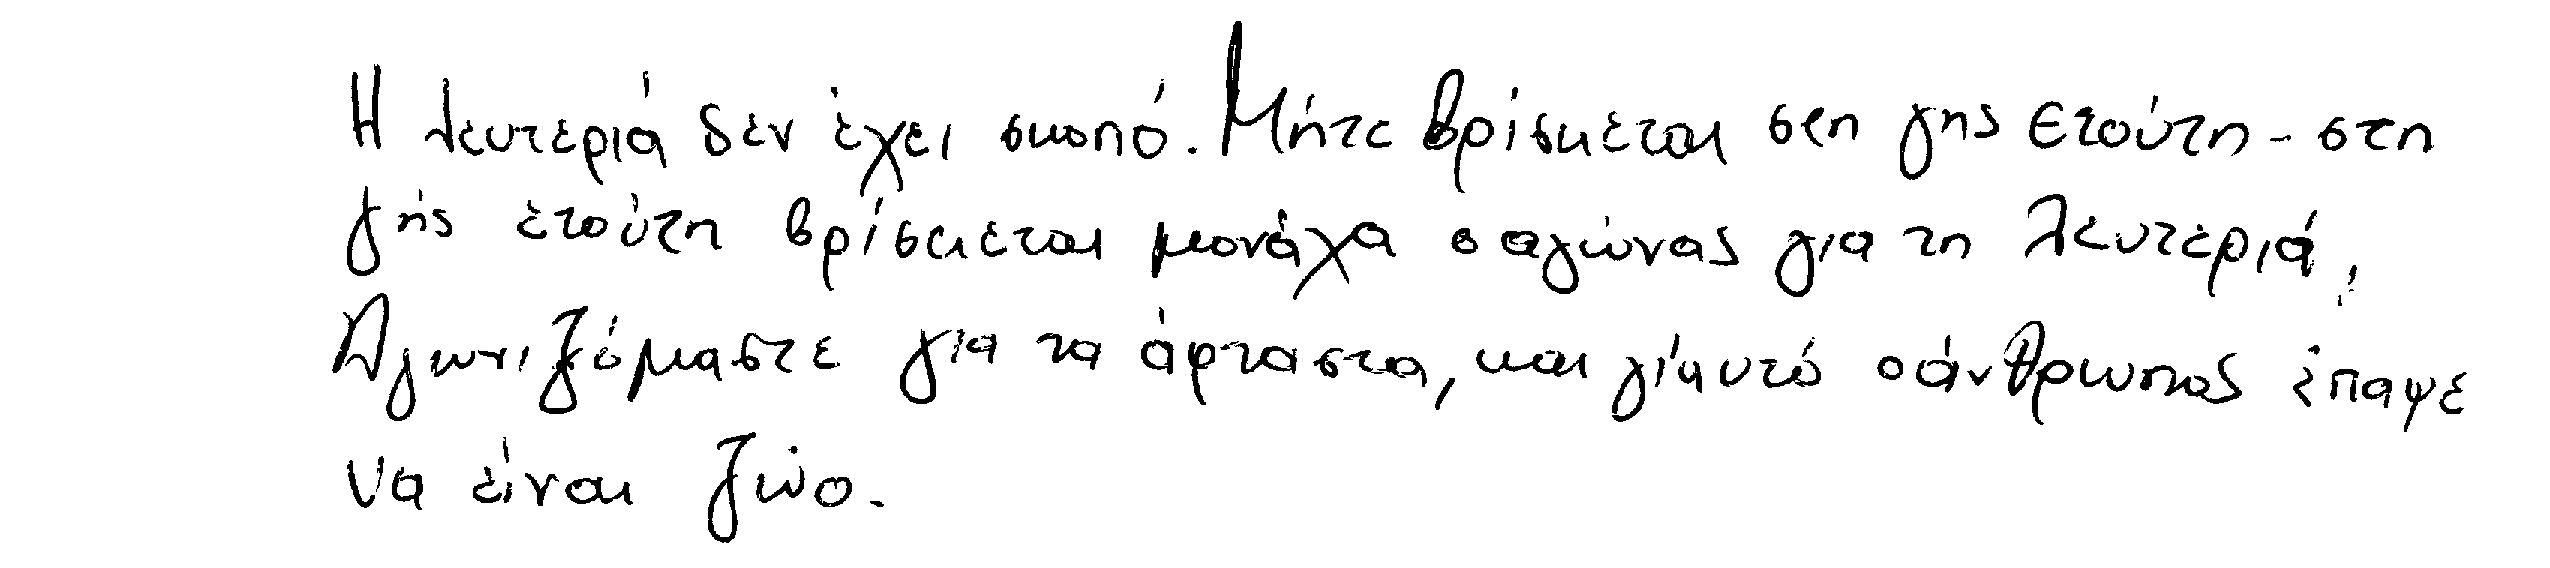 Η λευτεριά δεν έχει σκοπό. Μήτε βρίσκεται στη γης ετούτη - στη
γής ετούτη βρίσκεται μονάχα ο αγώνας για τη λευτεριά,
Αγωνιζόμαστε για τα άφταστα, και γι' αυτό ο άνθρωπος έπαψε
να είναι ζώο.